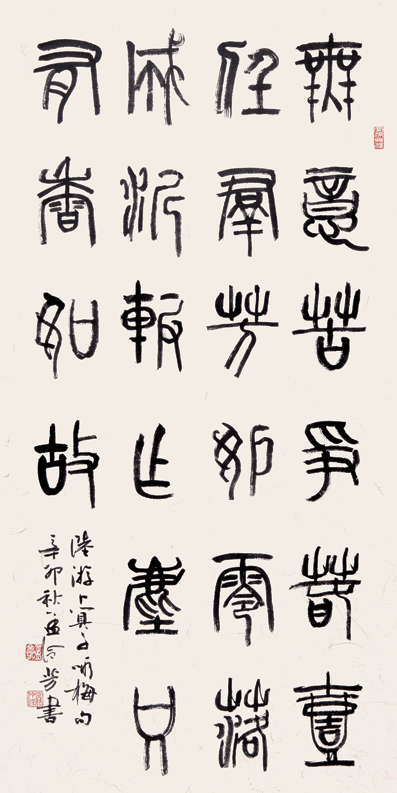 無意苦爭萅壹
任羣芳妒零落
成泥輾乍塵只
有香如故
陸游卜算子詠梅句
辛卯秋芳書